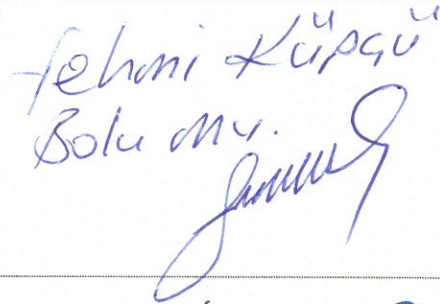 Fehmi Küpçü
Bolu Mv.